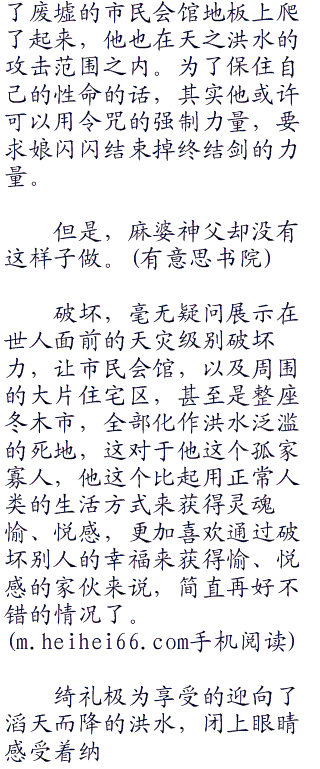 了废墟的市民会馆地板上爬
了起来，他也在天之洪水的
攻击范围之内。为了保住自
己的性命的话，其实他或许
可以用令咒的强制力量，要
求娘闪闪结束掉终结剑的力
量。
但是，麻婆神父却没有
这样子做。(有意思书院)
破坏，毫无疑问展示在
世人面前的天灾级别破坏
力，让市民会馆，以及周围
的大片住宅区，甚至是整座
冬木市，全部化作洪水泛滥
的死地，这对于他这个孤家
寡人，他这个比起用正常人
类的生活方式来获得灵魂
愉、悦感，更加喜欢通过破
坏别人的幸福来获得愉、悦
感的家伙来说，简直再好不
错的情况了。
(m.heihei66.com手机阅读)
绮礼极为享受的迎向了
滔天而降的洪水，闭上眼睛
感受着纳